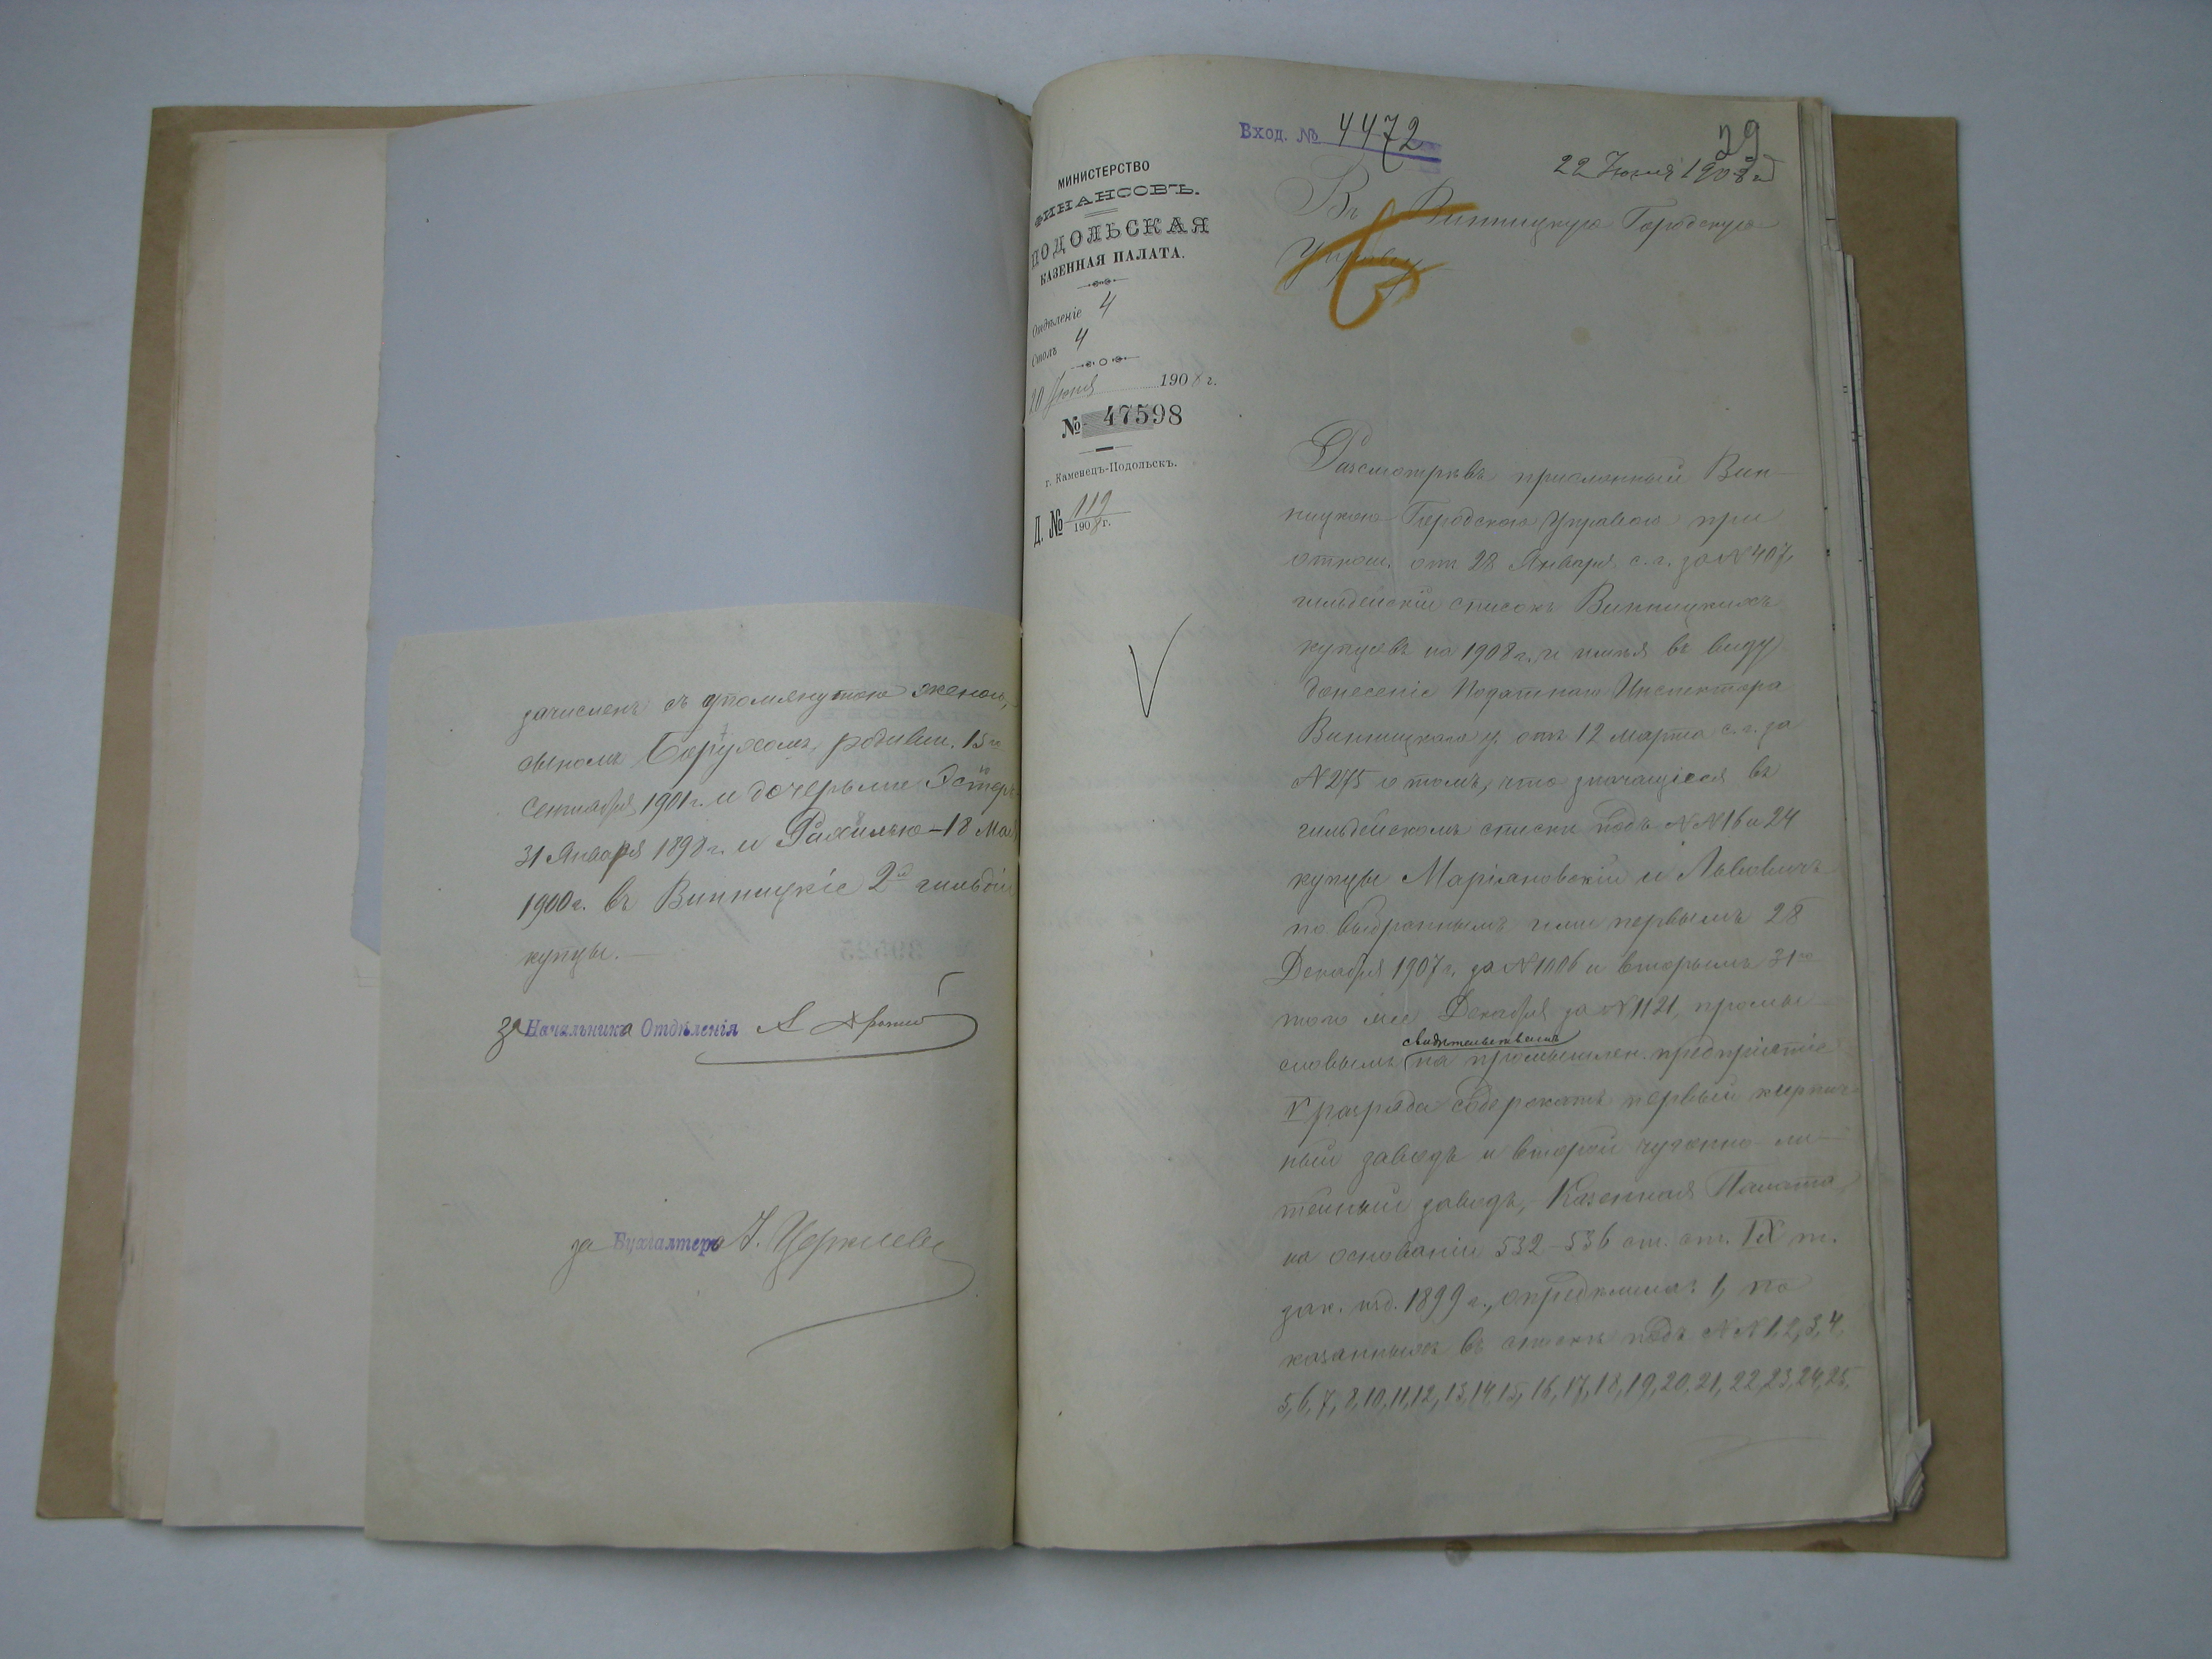 зачисленъ съ упомянутою женою,
сыномъ Борухомъ, родивш. 15го
Сентября 1901 г. и дочерьми Эстеръ
31 Января 1898 г. и Рахилью – 18 Мая
1900 г. въ Винницкіе 2й гильдіи
купцы.
За Начальника Отдѣленія
за Бухгалтера
Вход. № 4472
29
22 Іюня 1908 г.
МИНИСТЕРСТВО
ФИНАНСОВЪ.
ПОДОЛЬСКАЯ
КАЗЕННАЯ ПАЛАТА.
Отдѣленіе 4
Столъ 4
20 Іюня 1908 г.
№ 47598
г. Каменецъ-Подольскъ.
Д. № 119
1908 г.
Въ Винницкую Городскую
Управу
Разсмотрѣвъ присланный Вин
ницкою Городскою Управою при
отнош. отъ 28 Января с. г. за № 407,
гильдейскій списокъ Винницкихъ
купцовъ на 1908 г. и имѣя въ виду
донесеніе Податного Инспектора
Винницкаго у. отъ 12 Марта с. г. за
№ 275 о томъ, что значащіеся въ
гильдейскомъ списки подъ №№ 16 и 24
купцы Маріановскій и Львовичъ
по выбраннымъ ими первымъ 28
Декабря 1907 г. за № 1006 и вторымъ 31го
того же Декабря за № 1121, промы
свидѣтельствамъ
словымъ на промышлен. предпріятіе
V разряда содержатъ первый кирпич-
ный заводъ и второй чугунно-ли-
тейный заводъ, Казенная Палата,
на основаніи 532–536 ст. ст. IX т.
зак. изд. 1899 г., опредѣлила: 1, по
казанныхъ въ спискѣ подъ №№ 1, 2, 3, 4,
5, 6, 7, 8, 10, 11, 12, 13, 14, 15, 16, 17, 18, 19, 20, 21, 22, 23, 24, 25,